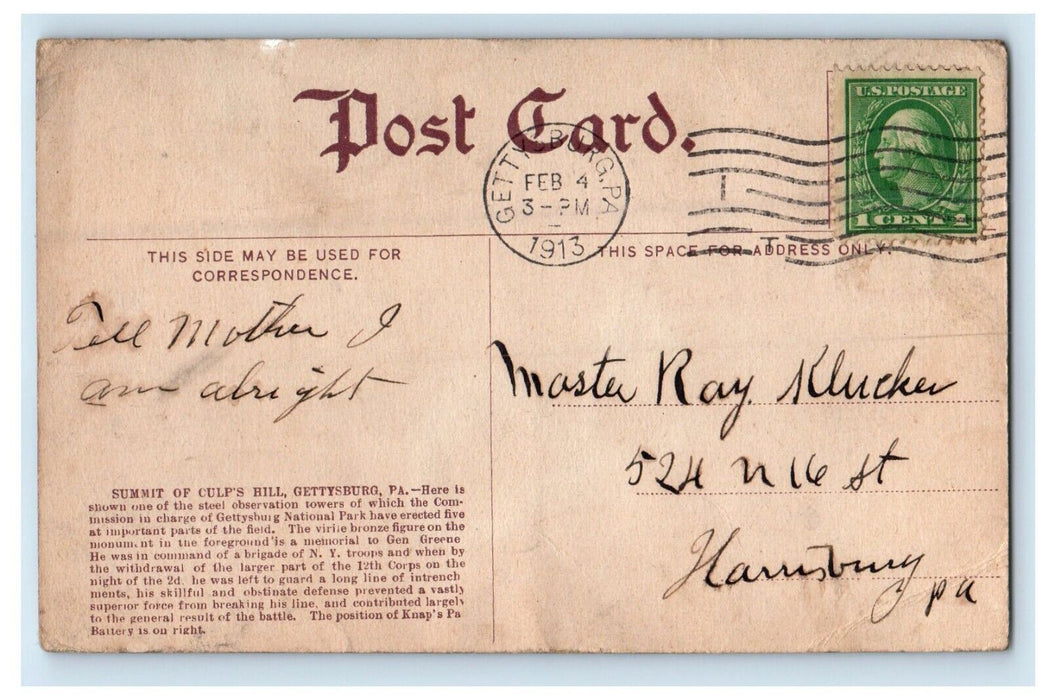 Post Card.
U.S. POSTAGE
1 CENT
GETTYSBURG, PA.
FEB 4
3-PM
1913
THIS SIDE MAY BE USED FOR
CORRESPONDENCE.
THIS SPACE FOR ADDRESS ONLY.
Tell Mother I
am alright
Master Ray Klucker
524 N 16 St
Harrisburg
pa
SUMMIT OF CULP'S HILL, GETTYSBURG, PA.—Here is
shown one of the steel observation towers of which the Com-
mission in charge of Gettysburg National Park have erected five
at important parts of the field. The virile bronze figure on the
monument in the foreground is a memorial to Gen Greene
He was in command of a brigade of N. Y. troops and when by
the withdrawal of the larger part of the 12th Corps on the
night of the 2d. he was left to guard a long line of intrench
ments, his skillful and obstinate defense prevented a vastly
superior force from breaking his line, and contributed largely
to the general result of the battle. The position of Knap's Pa
Battery is on right.